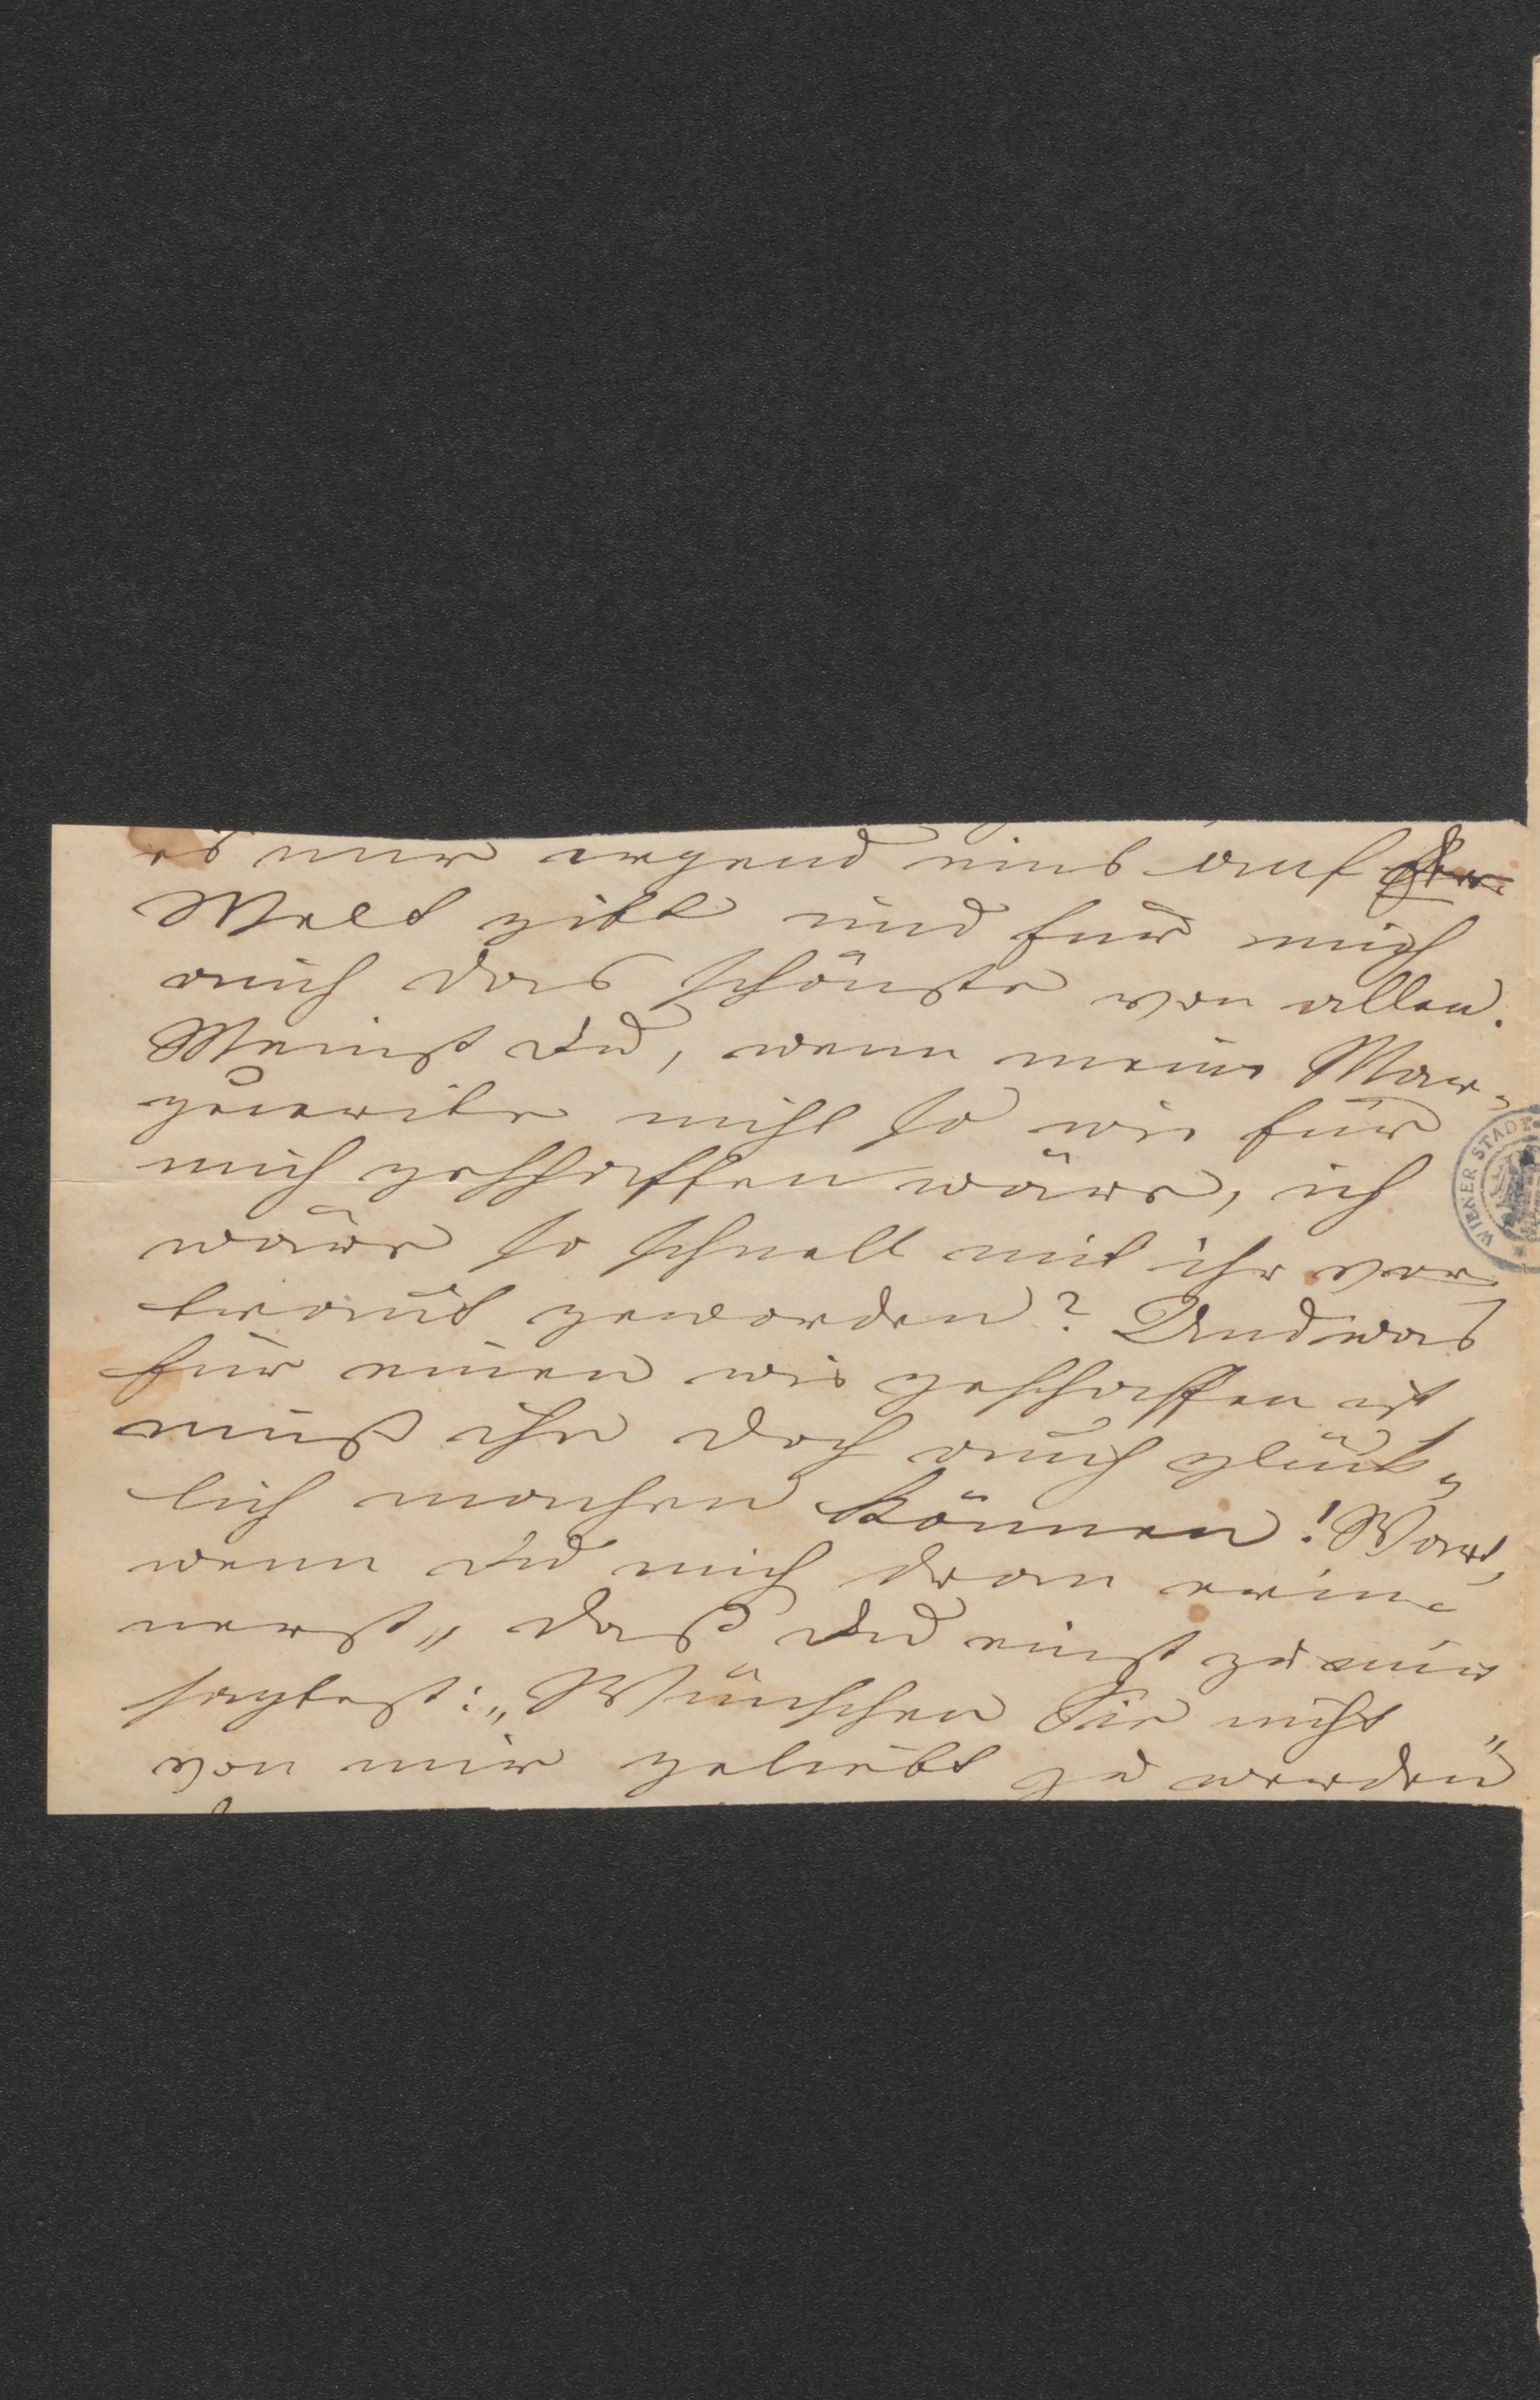 es nur irgend eins auf der
Welt gibt und für mich
auch das schönste von allen.
Meinst Du, wenn meine Mar-
guerite nicht so wie für
mich geschaffen wäre, ich
wäre so schnell mit ihr ver
traut geworden? Und was
für einen wie geschaffen ist
muß ihn doch auch glück-
lich machen können! Wart,
wenn Du mich dran erin-
nerst, daß Du einst zu mir
sagtest: „Wünschen Sie nicht
von mir geliebt zu werden"
WIENER STADT